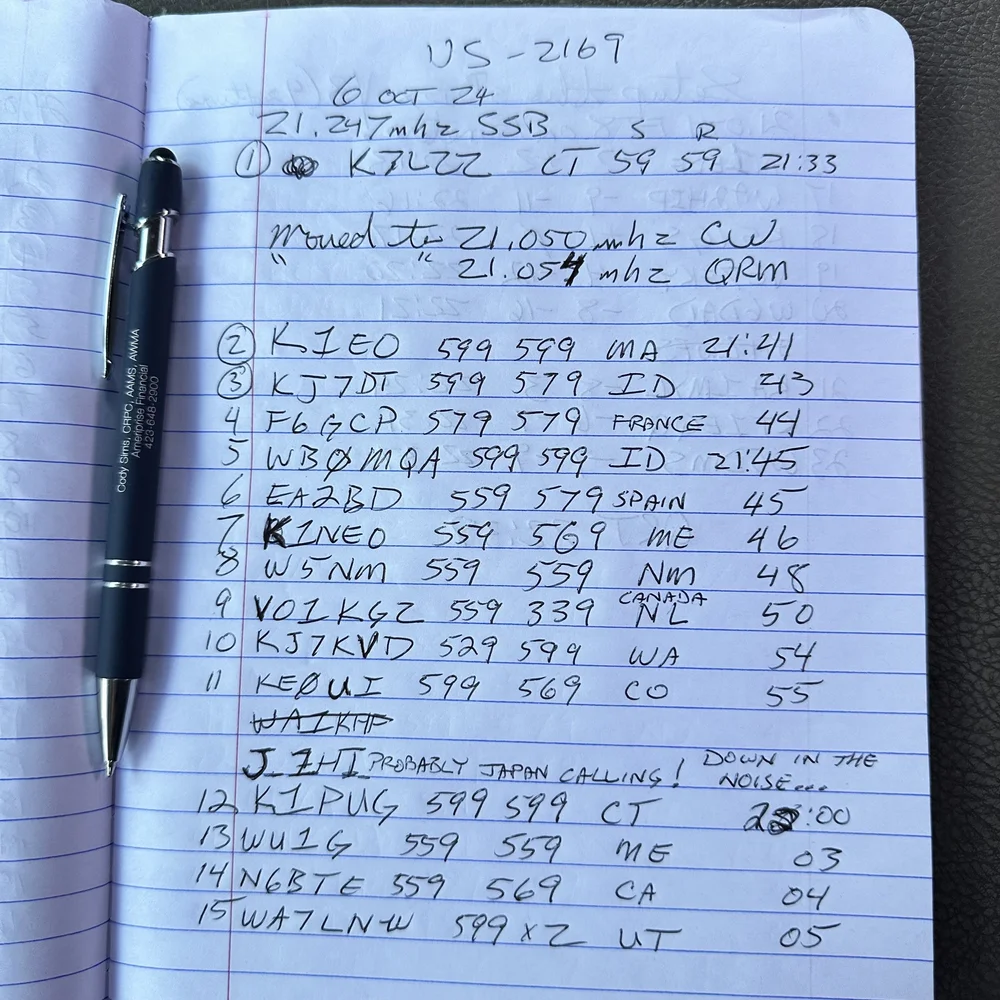 US-2169
6 OCT 24
21.247mhz SSB S R
① K7LZZ CT 59 59 21:33
Moved to 21.050 mhz CW
" " 21.054 mhz QRM
② K1EO 599 599 MA 21:41
③ KJ7DT 599 579 ID 43
4 F6GCP 579 579 FRANCE 44
5 WBØMQA 599 599 ID 21:45
6 EA2BD 559 579 SPAIN 45
7 K1NEO 559 569 ME 46
8 W5NM 559 559 NM 48
CANADA
9 VO1KGZ 559 339 NL 50
10 KJ7KVD 529 599 WA 54
11 KEØUI 599 569 CO 55
WA1KHP
J_1HI PROBABLY JAPAN CALLING! DOWN IN THE
NOISE...
12 K1PUG 599 599 CT 22:00
13 WU1G 559 559 ME 03
14 N6BTE 559 569 CA 04
15 WA7LNW 599 x2 UT 05
Cody Sims, CRPC, AAMS, AWMA
Ameriprise Financial
423-648-2900